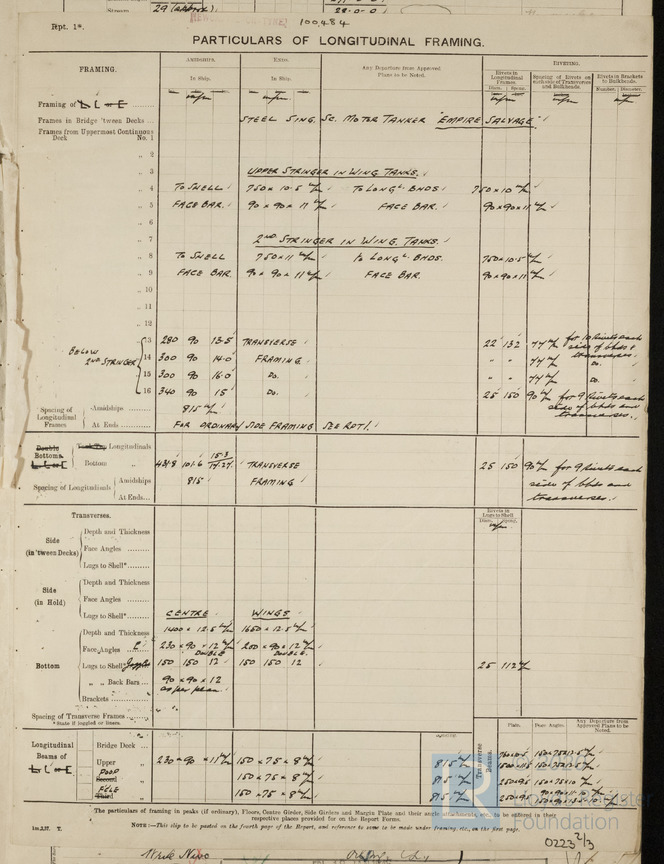 29 (approx)
Rpt. 1*.
100,484
PARTICULARS OF LONGITUDINAL FRAMING.
FRAMING. AMIDSHIPS. ENDS. Any Departure from Approved Plans to be Noted. RIVETING.
In Ship. In Ship. Rivets in Longitudinal Frames Spacing of Rivets on each side of Transverses and Bulkheads. Rivets in Brackets to Bulkheads.
Diam. Spcng. Number. Diameter.
Framing of L L or E m/m m/m m/m m/m m/m
Frames in Bridge 'tween Decks STEEL SING. SC. MOTOR TANKER "EMPIRE SALVAGE."
Frames from Uppermost Continuous Deck No. 1
„ 2
„ 3 UPPER STRINGER IN WING TANKS.
„ 4 TO SHELL 750 x 10.5 m/m TO LONGL. BHDS 750 x 10 m/m
„ 5 FACE BAR. 90 x 90 x 11 m/m FACE BAR. 90 x 90 x 11 m/m
„ 6
„ 7 2ND STRINGER IN WING TANKS.
„ 8 TO SHELL 750 x 11 m/m TO LONGL. BHDS. 750 x 10.5 m/m
„ 9 FACE BAR. 90 x 90 x 11 m/m FACE BAR. 90 x 90 x 11 m/m
„ 10
„ 11
„ 12
BELOW 2ND STRINGER
13 280 90 13.5 TRANSVERSE 22 132 77 m/m for 10 rivets each side of bhds & transverses.
14 300 90 14.0 FRAMING „ „ 77 m/m
15 300 90 16.0 DO. „ „ 77 m/m DO.
16 340 90 15 DO. 25 150 90 m/m for 9 rivets each side of bhds and transverses.
Spacing of Longitudinal Frames Amidships 815 m/m
At Ends FOR ORDINARY SIDE FRAMING SEE RPT 1.
Double Bottoms L L or E Longitudinals
Bottom „ 431.8 101.6 15.3 TRANSVERSE 25 150 90 m/m for 9 rivets each side of bhds and transverses.
Spacing of Longitudinals Amidships 815 FRAMING
At Ends...
Transverses. Rivets in Lugs to Shell
Diam. Spcng.
m/m
Side (in 'tween Decks) Depth and Thickness
Face Angles
Lugs to Shell*
Side (in Hold) Depth and Thickness
Face Angles
Lugs to Shell* CENTRE WINGS
Bottom Depth and Thickness 1400 x 12.5 m/m 1650 x 12.5 m/m
Face Angles 230 x 90 x 12 m/m DOUBLE 200 x 90 x 12 m/m DOUBLE.
Lugs to Shell* Joggled 150 150 12 150 150 12 25 112 m/m
„ „ Back Bars 90 x 90 x 12
Brackets as per plan.
Spacing of Transverse Frames
*State if joggled or liners.
Plate. Face Angles. Any Departure from Approved Plans to be Noted.
Longitudinal Beams of L L or E Transverse Beams.
Bridge Deck
Upper „ 230 x 90 x 11 m/m 150 x 75 x 8 m/m 815 m/m
POOP Second „ 150 x 75 x 8 m/m 815 m/m
FCLE Third „ 150 x 75 x 8 m/m 815 m/m
The particulars of framing in peaks (if ordinary), Floors, Centre Girder, Side Girders and Margin Plate and their angle attachments, etc., to be entered in their respective places provided for on the Report Forms.
NOTE :—This slip to be pasted on the fourth page of the Report, and reference to same to be made under framing, etc., on the first page.
1m.2.37. T.
Foundation
0223 2/3